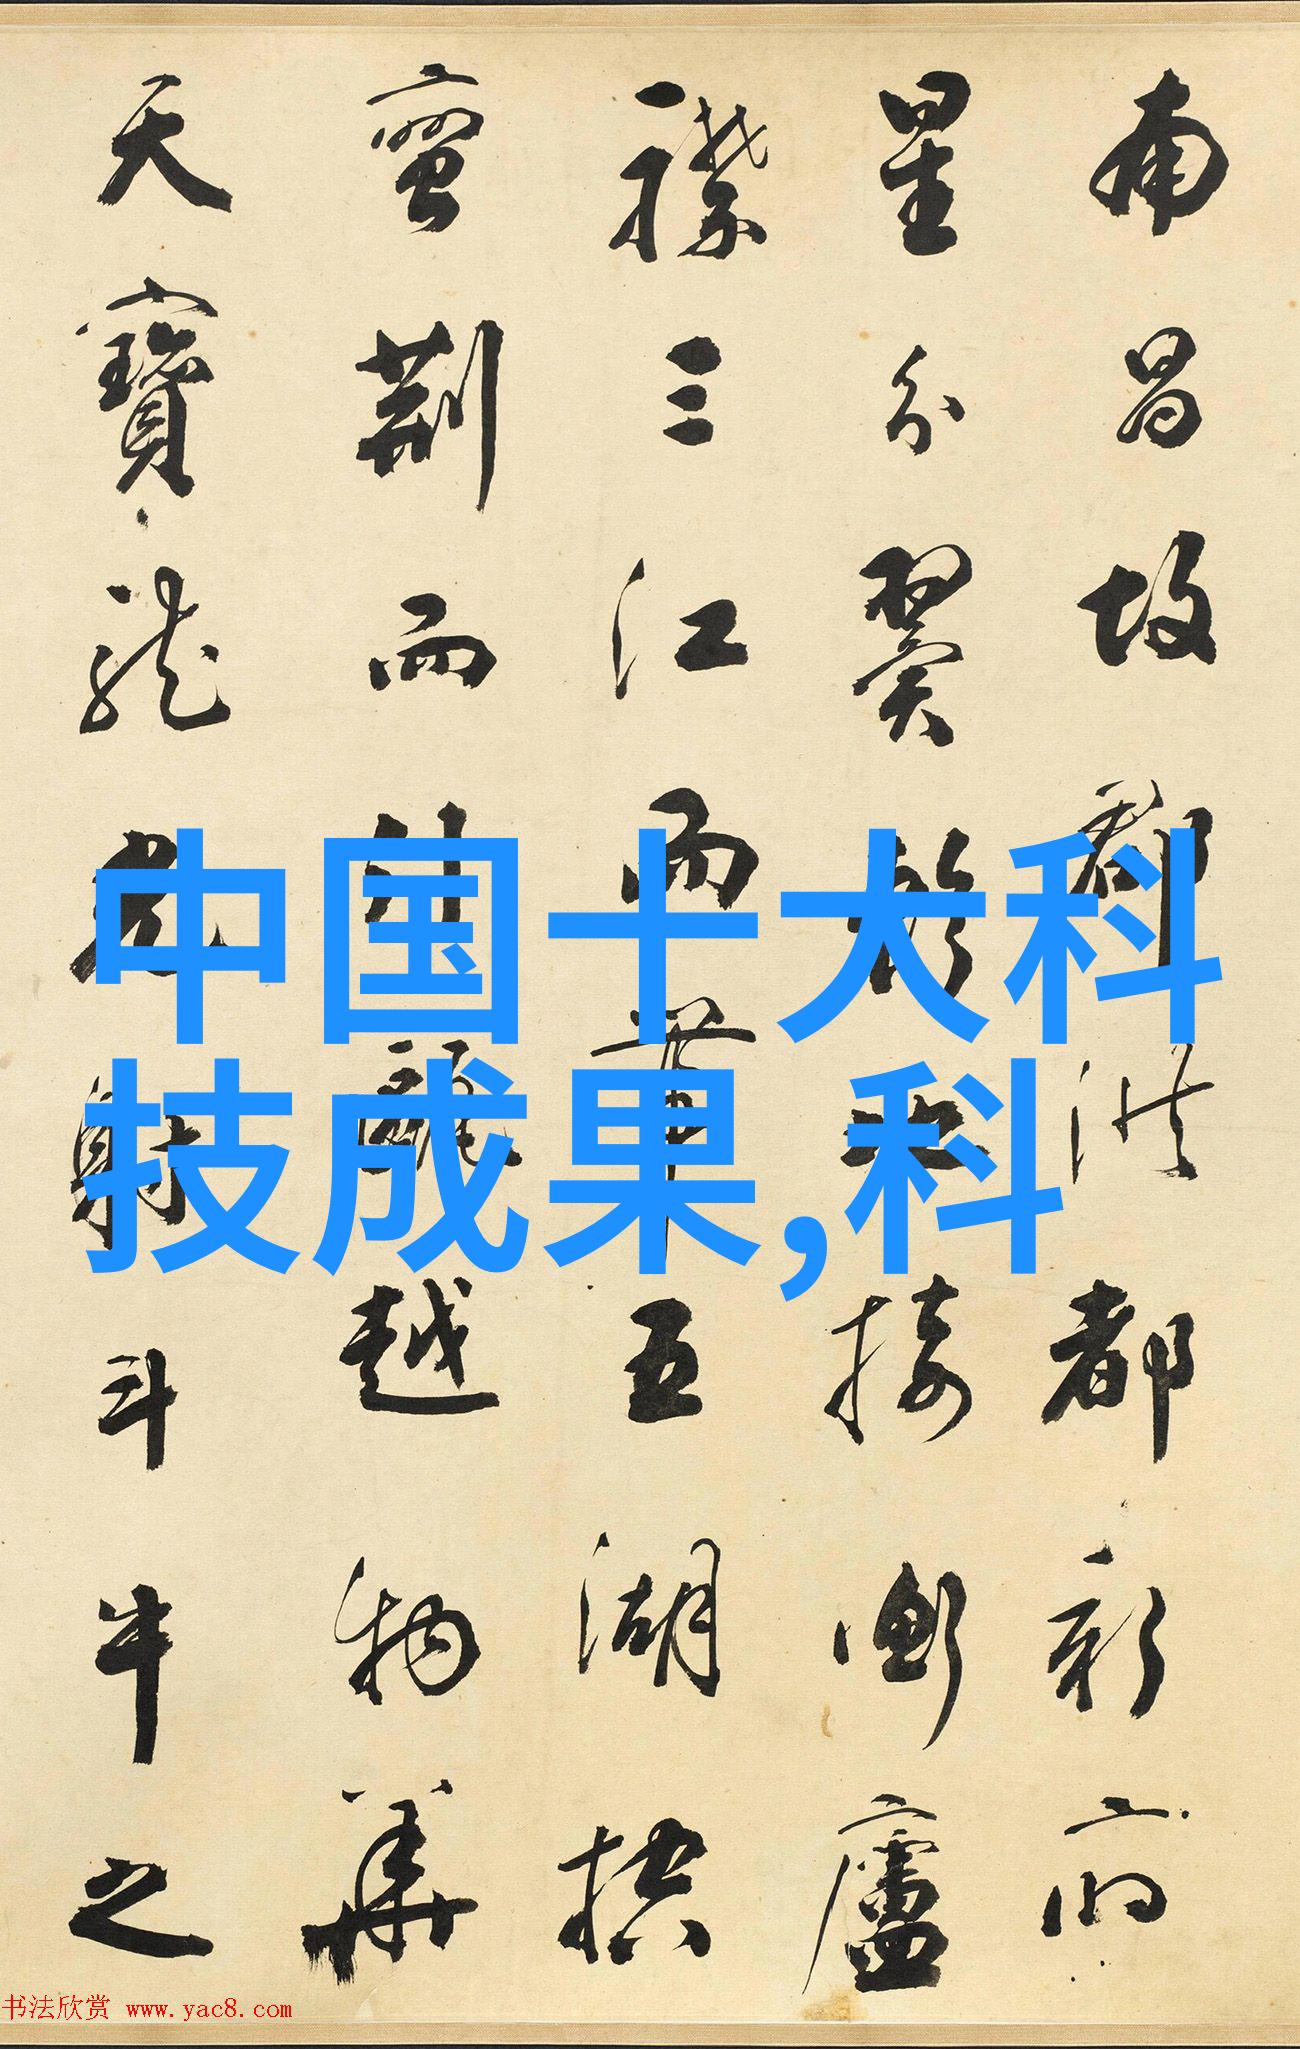 南昌故郡洪都新府
星分翼軫地接衡廬
襟三江而帶五湖控
蠻荊而引甌越物華
天寶龍光射斗牛之
中国十大科
技成果,科
书法欣赏 www.yac8.com